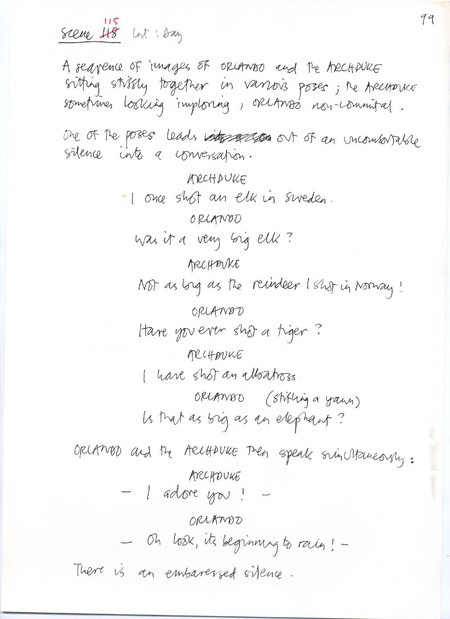 99
Scene 118 115 Int: Day
A sequence of images of ORLANDO and the ARCHDUKE
sitting stiffly together in various poses; the ARCHDUKE
sometimes looking imploring, ORLANDO non-commital.
One of the poses leads out of an uncomfortable
silence into a conversation.
ARCHDUKE
I once shot an elk in Sweden.
ORLANDO
Was it a very big elk?
ARCHDUKE
Not as big as the reindeer I shot in Norway!
ORLANDO
Have you ever shot a tiger?
ARCHDUKE
I have shot an albatross
ORLANDO (stifling a yawn)
Is that as big as an elephant?
ORLANDO and the ARCHDUKE then speak simultaneously:
ARCHDUKE
— I adore you! —
ORLANDO
— Oh look, its beginning to rain! —
There is an embaressed silence.